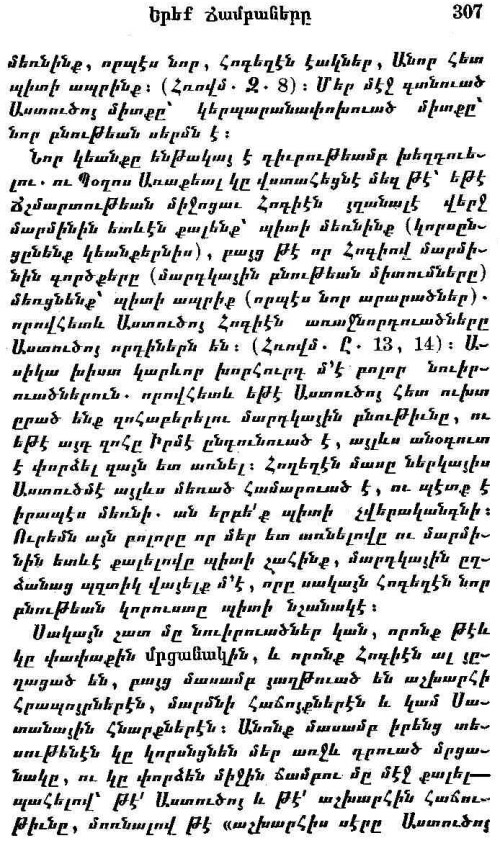 Երեք Ճամբաները 307
մեռնինք, որպէս նոր, Հոգեղէն էակներ, Անոր հետ
պիտի ապրինք։ (Հռովմ. Զ. 8)։ Մեր մէջ գտնուած
Աստուծոյ միտքը՝ կերպարանափոխուած միտքը՝
նոր բնութեան սերմն է։
Նոր կեանքը ենթակայ է դիւրութեամբ խեղդուե-
լու. ու Պօղոս Առաքեալ կը վստահեցնէ մեզ թէ՝ եթէ
Ճշմարտութեան միջոցաւ Հոգիէն յղանալէ վերջ
մարմինին ետևէն քալենք՝ պիտի մեռնինք (կորսըն-
ցընենք կեանքերնիս), բայց թէ որ Հոգիով մարմի-
նին գործքերը (մարդկային բնութեան միտումները)
մեռցնենք՝ պիտի ապրիք (որպէս նոր արարածներ).
որովհետև Աստուծոյ Հոգիէն առաջնորդուածները
Աստուծոյ որդիներն են։ (Հռովմ. Ը. 13, 14)։ Ա-
սիկա խիստ կարևոր խորհուրդ մ՚է բոլոր նուիր-
ուածներուն. որովհետև եթէ Աստուծոյ հետ ուխտ
ըրած ենք զոհաբերելու մարդկային բնութիւնը, ու
եթէ այդ զոհը Իրմէ ընդունուած է, այլևս անօգուտ
է փորձել զայն ետ առնել։ Հողեղէն մասը ներկայիս
Աստուծմէ այլևս մեռած համարուած է, ու պէտք է
իրապէս մեռնի. ան երբե՛ք պիտի չվերականգնի։
Ուրեմն այն բոլորը որ մեր ետ առնելովը ու մարմի-
նին ետևէ քալելովը պիտի շահինք, մարդկային ըղ-
ձանաց պզտիկ վայելք մ՚է, որը սակայն Հոգեղէն նոր
բնութեան կորուստը պիտի նշանակէ։
Սակայն շատ մը նուիրուածներ կան, որոնք թէև
կը փափաքին մրցանակին, և որոնք Հոգիէն ալ յը-
ղացած են, բայց մասամբ յաղթուած են աշխարհի
հրապոյրներէն, մարմնի հաճոյքներէն և կամ Սա-
տանային հնարքներէն։ Անոնք մասամբ իրենց տե-
սութենէն կը կորսնցնեն մեր առջև դրուած մրցա-
նակը, ու կը փորձեն միջին ճամբու մը մէջ քալել—
պահելով՝ թէ՛ Աստուծոյ և թէ՛ աշխարհին հաճու-
թիւնը, մոռնալով թէ «աշխարհիս սէրը Աստուծոյ